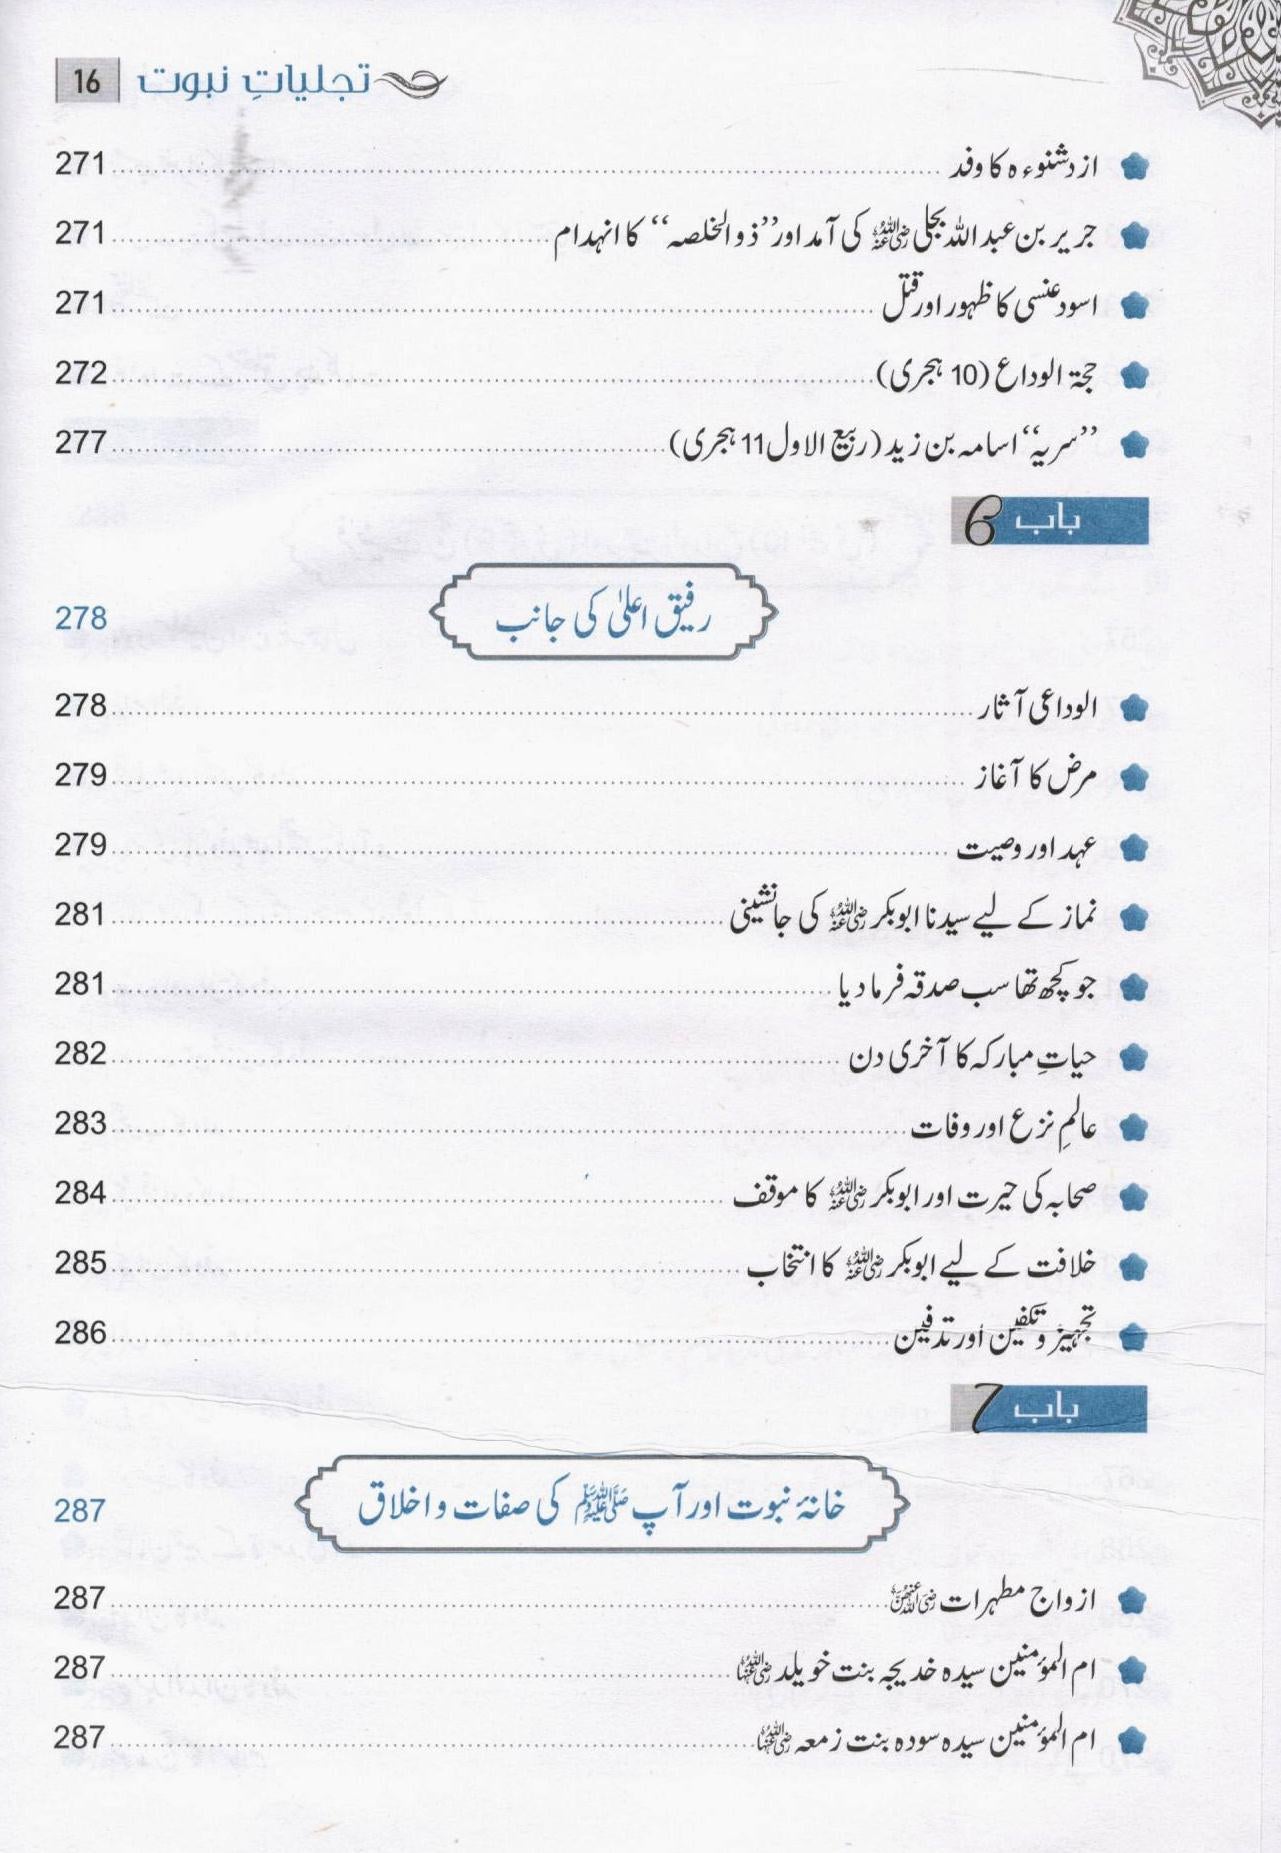 تجلیاتِ نبوت 16
ازدشنوءہ کا وفد 271
جریر بن عبداللہ بجلی رضی اللہ عنہ کی آمد اور ’’ذوالخلصہ‘‘ کا انہدام 271
اسود عنسی کا ظہور اور قتل 271
حجۃ الوداع (10 ہجری) 272
’’سریہ‘‘ اسامہ بن زید (ربیع الاول 11 ہجری) 277
باب 6
رفیق اعلیٰ کی جانب 278
الوداعی آثار 278
مرض کا آغاز 279
عہد اور وصیت 279
نماز کے لیے سیدنا ابوبکر رضی اللہ عنہ کی جانشینی 281
جو کچھ تھا سب صدقہ فرما دیا 281
حیاتِ مبارکہ کا آخری دن 282
عالمِ نزع اور وفات 283
صحابہ کی حیرت اور ابوبکر رضی اللہ عنہ کا موقف 284
خلافت کے لیے ابوبکر رضی اللہ عنہ کا انتخاب 285
تجہیز و تکفین اور تدفین 286
باب 7
خانۂ نبوت اور آپ ﷺ کی صفات و اخلاق 287
ازواج مطہرات رضی اللہ عنہن 287
ام المؤمنین سیدہ خدیجہ بنت خویلد رضی اللہ عنہا 287
ام المؤمنین سیدہ سودہ بنت زمعہ رضی اللہ عنہا 287